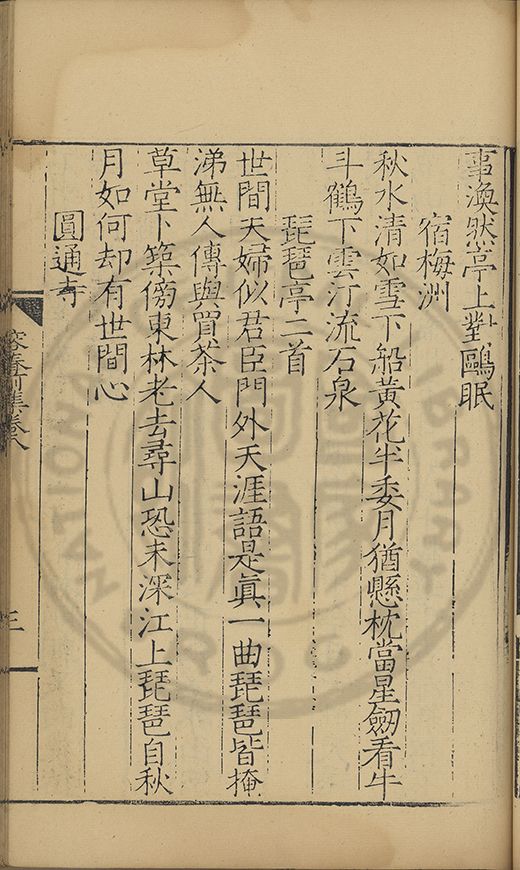 事渙然亭上對鷗眠
宿梅洲
秋水清如雪下船黃花半委月猶懸枕當星劒看牛
斗鶴下雲汀流石泉
琵琶亭二首
世間夫婦似君臣門外天涯語是眞一曲琵琶皆掩
涕無人傳與買茶人
草堂卜築傍東林老去尋山恐未深江上琵琶自秋
月如何却有世間心
圓通寺
集卷八
三